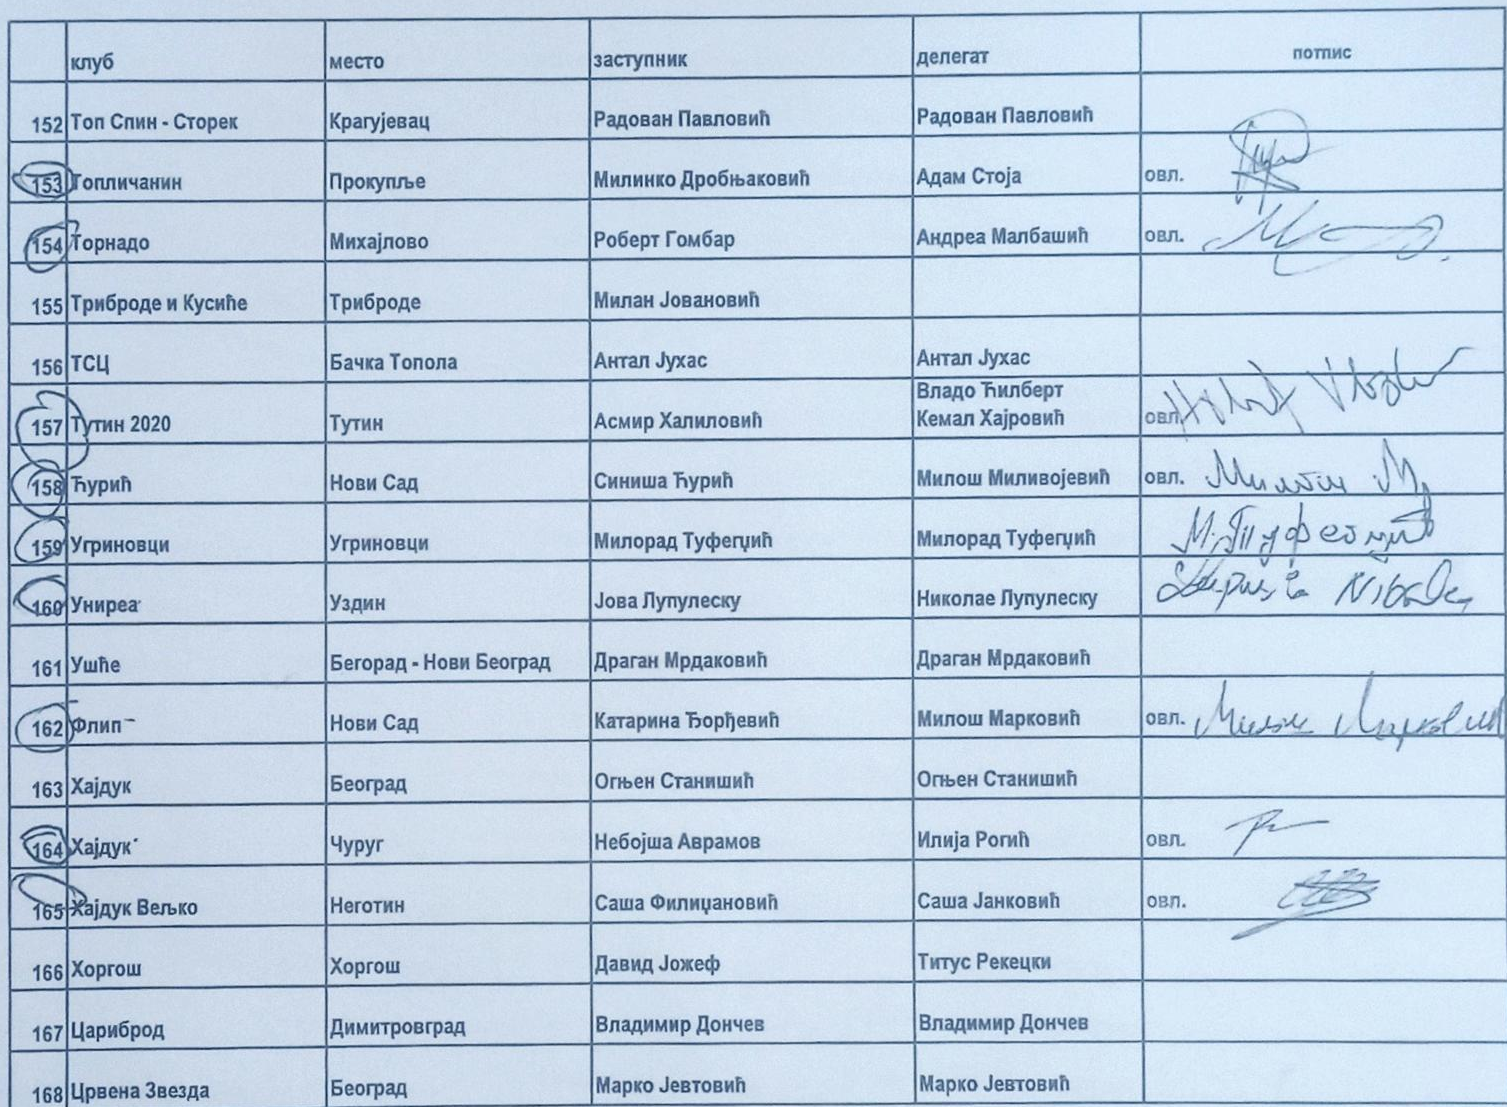 клуб место заступник делегат потпис
152 Топ Спин - Сторек Крагујевац Радован Павловић Радован Павловић
153 Топличанин Прокупље Милинко Дробњаковић Адам Стоја овл.
154 Торнадо Михајлово Роберт Гомбар Андреа Малбашић овл.
155 Триброде и Кусиће Триброде Милан Јовановић
156 ТСЦ Бачка Топола Антал Јухас Антал Јухас
Владо Ћилберт
157 Тутин 2020 Тутин Асмир Халиловић Кемал Хајровић овл.
158 Ћурић Нови Сад Синиша Ћурић Милош Миливојевић овл.
159 Угриновци Угриновци Милорад Туфегџић Милорад Туфегџић
160 Униреа Уздин Јова Лупулеску Николае Лупулеску
161 Ушће Бегорад - Нови Београд Драган Мрдаковић Драган Мрдаковић
162 Флип Нови Сад Катарина Ђорђевић Милош Марковић овл.
163 Хајдук Београд Огњен Станишић Огњен Станишић
164 Хајдук Чуруг Небојша Аврамов Илија Рогић овл.
165 Хајдук Вељко Неготин Саша Филиџановић Саша Јанковић овл.
166 Хоргош Хоргош Давид Јожеф Титус Рекецки
167 Цариброд Димитровград Владимир Дончев Владимир Дончев
168 Црвена Звезда Београд Марко Јевтовић Марко Јевтовић